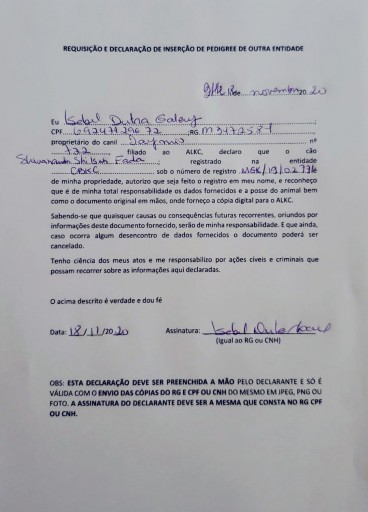 REQUISIÇÃO E DECLARAÇÃO DE INSERÇÃO DE PEDIGREE DE OUTRA ENTIDADE
18 de novembro 20 20
Eu Isabel Dutra
CPF 69247129672 ;RG M3472587 ;
proprietário do canil nº
722 filiado ao ALKC, declaro que o cão
registrado na entidade
CBKC sob o número de registro
de minha propriedade, autorizo que seja feito o registro em meu nome, e reconheço
que é de minha total responsabilidade os dados fornecidos e a posse do animal bem
como o documento original em mãos, onde forneço a cópia digital para o ALKC.
Sabendo-se que quaisquer causas ou consequências futuras recorrentes, oriundos por
informações deste documento fornecido, serão de minha responsabilidade. E que ainda,
caso ocorra algum desencontro de dados fornecidos o documento poderá ser
cancelado.
Tenho ciência dos meus atos e me responsabilizo por ações cíveis e criminais que
possam recorrer as informações aqui declaradas.
O acima descrito é verdade e dou fé
Data: 18/11/2020 Assinatura:
(Igual ao RG ou CNH)
OBS: ESTA DECLARAÇÃO DEVE SER PREENCHIDA A MÃO PELO DECLARANTE E SÓ É
VÁLIDA COM O ENVIO DAS CÓPIAS DO RG E CPF OU CNH DO MESMO EM JPEG, PNG OU
FOTO. A ASSINATURA DO DECLARANTE DEVE SER A MESMA QUE CONSTA NO RG CPF
OU CNH.